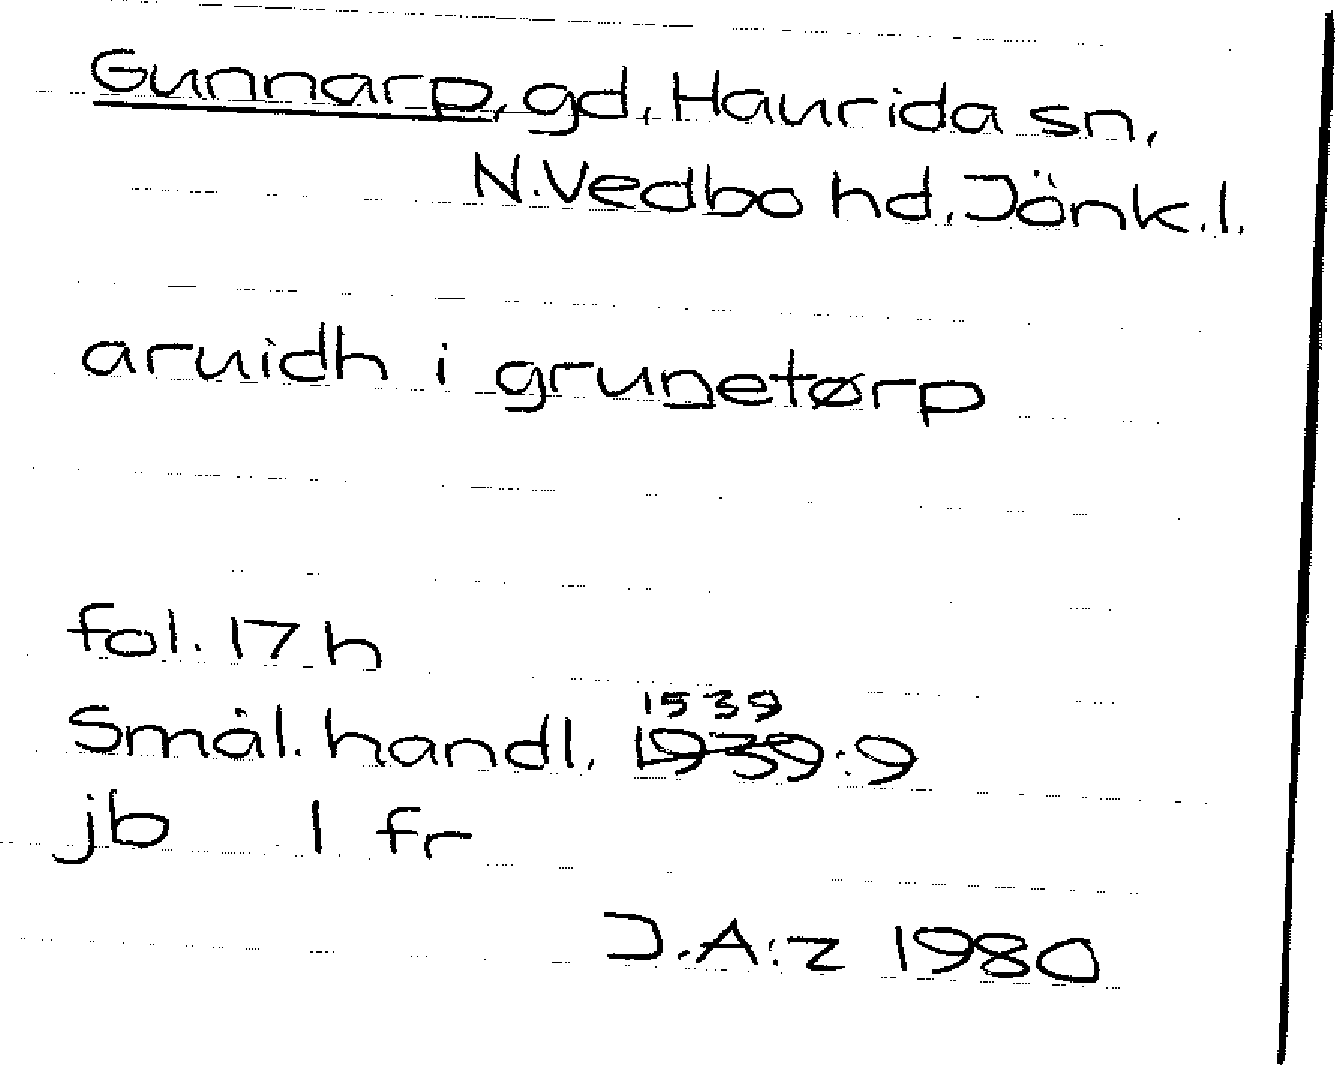 Gunnarp, gd, Haurida sn,
N. Vedbo hd, Jönk. l.
aruidh i grunetørp
fol. 17 h
1539
Smål. handl. 1939:9
jb 1 fr
J.A:z 1980